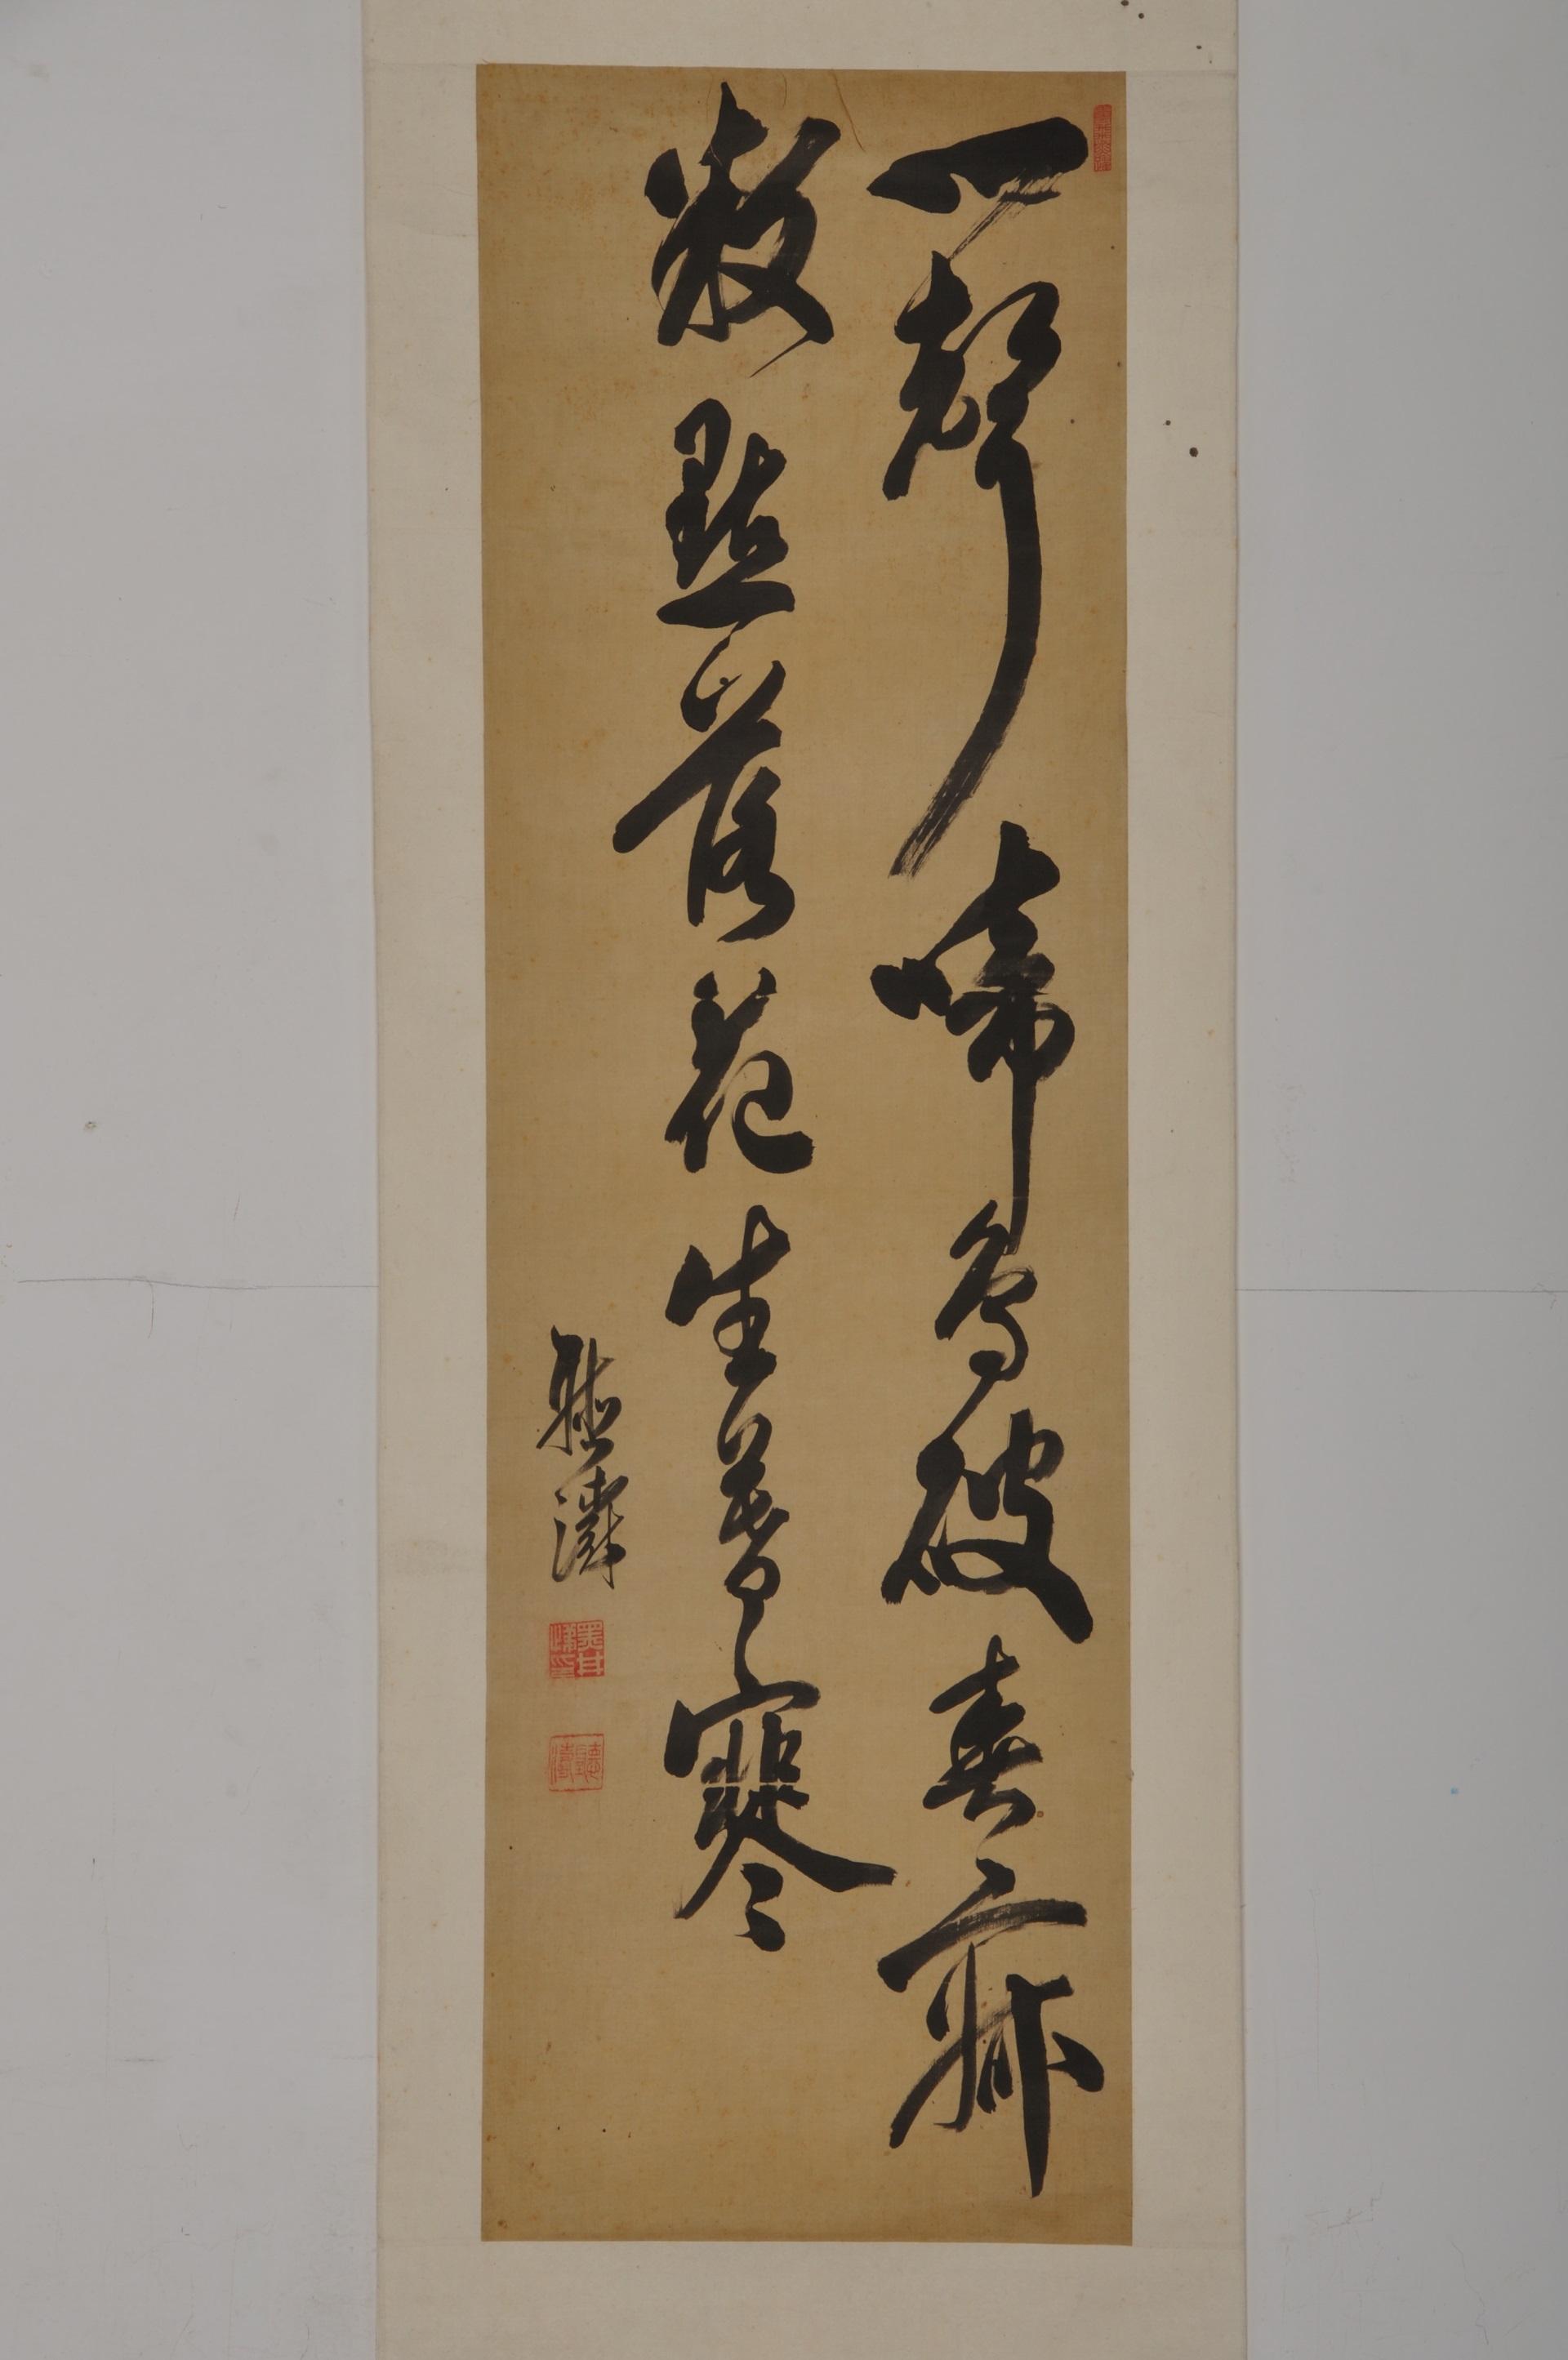 一聲啼鳥破春寂
數點落花生暮寒
聽濤